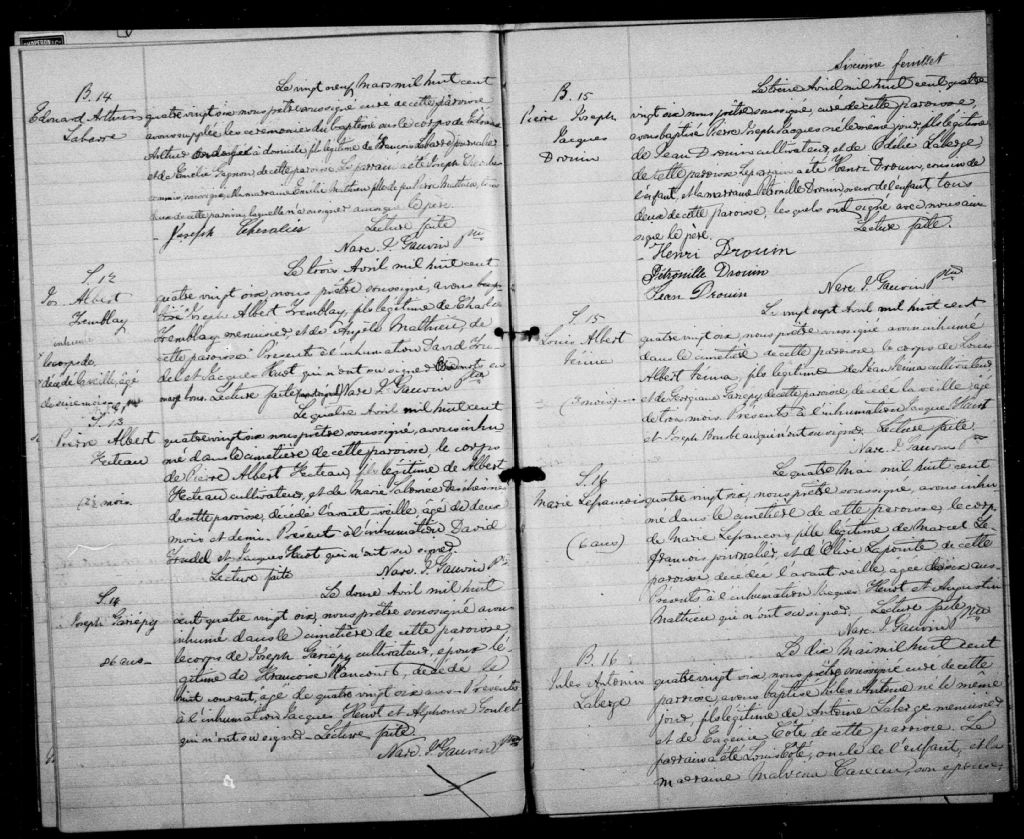 B. 14
Edouard Arthur
Labarre
Le vingt neuf Mars mil huit cent
quatre vingt six, nous prêtre soussigné curé de cette paroisse
avons suppléé les cérémonies du baptême sur le corps de Edouard
Arthur ondoyé à domicile, fils légitime de François Labarre journalier
et de Emélie Gagnon de cette paroisse. Le parrain a été Joseph Chevalier
soussigné, et la marraine Emélie Mathieu fille de feu Pierre Mathieu,
de cette paroisse, laquelle n'a su signer
Joseph Chevalier Lecture faite
Narc. J. Gauvin Ptre
S. 12
Jos. Albert
Tremblay
inhumé
le corps de
décédé la veille, âgé
de seize mois
Le trois Avril mil huit cent
quatre vingt six, nous prêtre soussigné, avons
Joseph Albert Tremblay, fils légitime de Charles
Tremblay menuisier, et de Angèle Mathieu, de
cette paroisse. Présents à l'inhumation David Tru
del et Jacques Huot qui n'ont su signer. mots en
marge bons. Lecture faite Narc. J. Gauvin Ptre
S. 13
Pierre Albert
Fecteau
2½ mois
Le quatre Avril mil huit cent
quatre vingt six nous prêtre soussigné, avons inhu
mé dans le cimetière de cette paroisse, le corps
de Pierre Albert Fecteau, fils légitime de Albert
Fecteau cultivateur, et de Marie Salomée Deschesnes
de cette paroisse, décédé l'avant-veille, âgé de deux
mois et demi. Présent à l'inhumation David
Trudel et Jacques Huot qui n'ont su signer.
Lecture faite Narc. J. Gauvin Ptre
S. 14
Joseph Gariépy
86 ans
Le douze Avril mil huit
cent quatre vingt six, nous prêtre soussigné avons
inhumé dans le cimetière de cette paroisse
le corps de Joseph Gariépy cultivateur, époux lé
gitime de Françoise Rancourt, décédé le
huit courant, âgé de quatre vingt six ans. Présents
à l'inhumation Jacques Huot et Alphonse Goulet
qui n'ont su signer. Lecture faite
Narc. J. Gauvin Ptre
Sixième feuillet
B. 15
Pierre Joseph
Jacques
Drouin
Le treize Avril mil huit cent quatre
vingt six nous prêtre soussigné, curé de cette paroisse,
avons baptisé Pierre Joseph Jacques né le même jour, fils légitime
de Jean Drouin cultivateur, et de Odélie Laberge
de cette paroisse. Le parrain a été Henri Drouin, cousin de
l'enfant, et la marraine Pétronille Drouin soeur de l'enfant, tous
deux de cette paroisse, lesquels ont signé avec nous ainsi
signé le père. Lecture faite.
Henri Drouin
Pétronille Drouin
Jean Drouin Narc. J. Gauvin Ptre
S. 15
Louis Albert
Vézina
(3 mois)
Le vingt sept Avril mil huit cent
quatre vingt six, nous prêtre soussigné avons inhumé
dans le cimetière de cette paroisse, le corps de Louis
Albert Vézina, fils légitime de Jean Vézina cultivateur
et de Georgiana Gariépy de cette paroisse, décédé la veille âgé
de trois mois. Présents à l'inhumation Jacques Huot
et Joseph qui n'ont su signer. Lecture faite
Narc. J. Gauvin Ptre
S. 16
Marie Lefrancois
(6 ans)
Le quatre Mai mil huit cent
quatre vingt six, nous prêtre soussigné, avons inhu
mé dans le cimetière de cette paroisse, le corps
de Marie Lefrancois, fille légitime de Marcel Le
francois journalier, et d'Olive Lapointe de cette
paroisse décédée l'avant veille, âgée de six ans.
Présents à l'inhumation Jacques Huot et Augustin
Mathieu qui n'ont su signer. Lecture faite
Narc. J. Gauvin Ptre
B. 16
Jules Antoine
Laberge
Le dix Mai mil huit cent
quatre vingt six, nous prêtre soussigné curé de cette
paroisse, avons baptisé Jules Antoine né le même
jour, fils légitime de Antoine Laberge menuisier
et de Eugénie Côté de cette paroisse. Le
parrain a été Louis Côté, oncle de l'enfant, et la
marraine Malvina Careau, son épouse